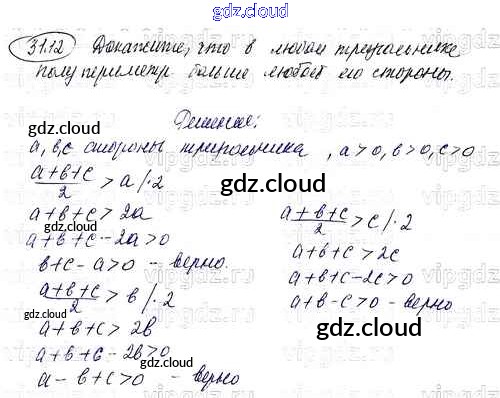 gdz.cloud
31.12 Докажите, что в любом треугольнике
полупериметр больше любой его стороны.
Решение:
gdz.cloud
a, b, c стороны треугольника, a>0, b>0, c>0
(a+b+c)/2 > a |·2
gdz.cloud
a+b+c > 2a
a+b+c-2a>0
b+c-a>0 - верно.
(a+b+c)/2 > b |·2
a+b+c > 2b
a+b+c-2b>0
a-b+c>0 - верно
gdz.cloud
(a+b+c)/2 > c |·2
a+b+c>2c
a+b+c-2c>0
a+b-c>0 - верно
gdz.cloud
gdz.cloud